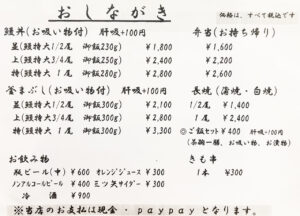 おしながき
価格は、すべて税込です
鰻丼(お吸い物付) 肝吸+100円
並(鰻特大1/2尾 御飯230g) ¥1,800
上(鰻特大3/4尾 御飯250g) ¥2,400
特(鰻特大1尾 御飯280g) ¥2,800
釜まぶし(お吸い物付) 肝吸+100円
並(鰻特大1/2尾 御飯300g) ¥2,100
上(鰻特大3/4尾 御飯300g) ¥2,700
特(鰻特大1尾 御飯300g) ¥3,300
お飲み物
瓶ビール(中) ¥600 オレンジジュース ¥300
ノンアルコールビール ¥400 三ツ矢サイダー ¥300
冷酒 ¥900
弁当(お持ち帰り)
¥1,600
¥2,200
¥2,600
長焼(蒲焼・白焼)
1/2尾 ¥1,400
1尾 ¥2,400
◎ご飯セット¥400 肝吸+100円
(茶碗一膳、お吸い物、お漬物)
きも串
1本 ¥300
※当店のお支払は現金・paypayとなります。